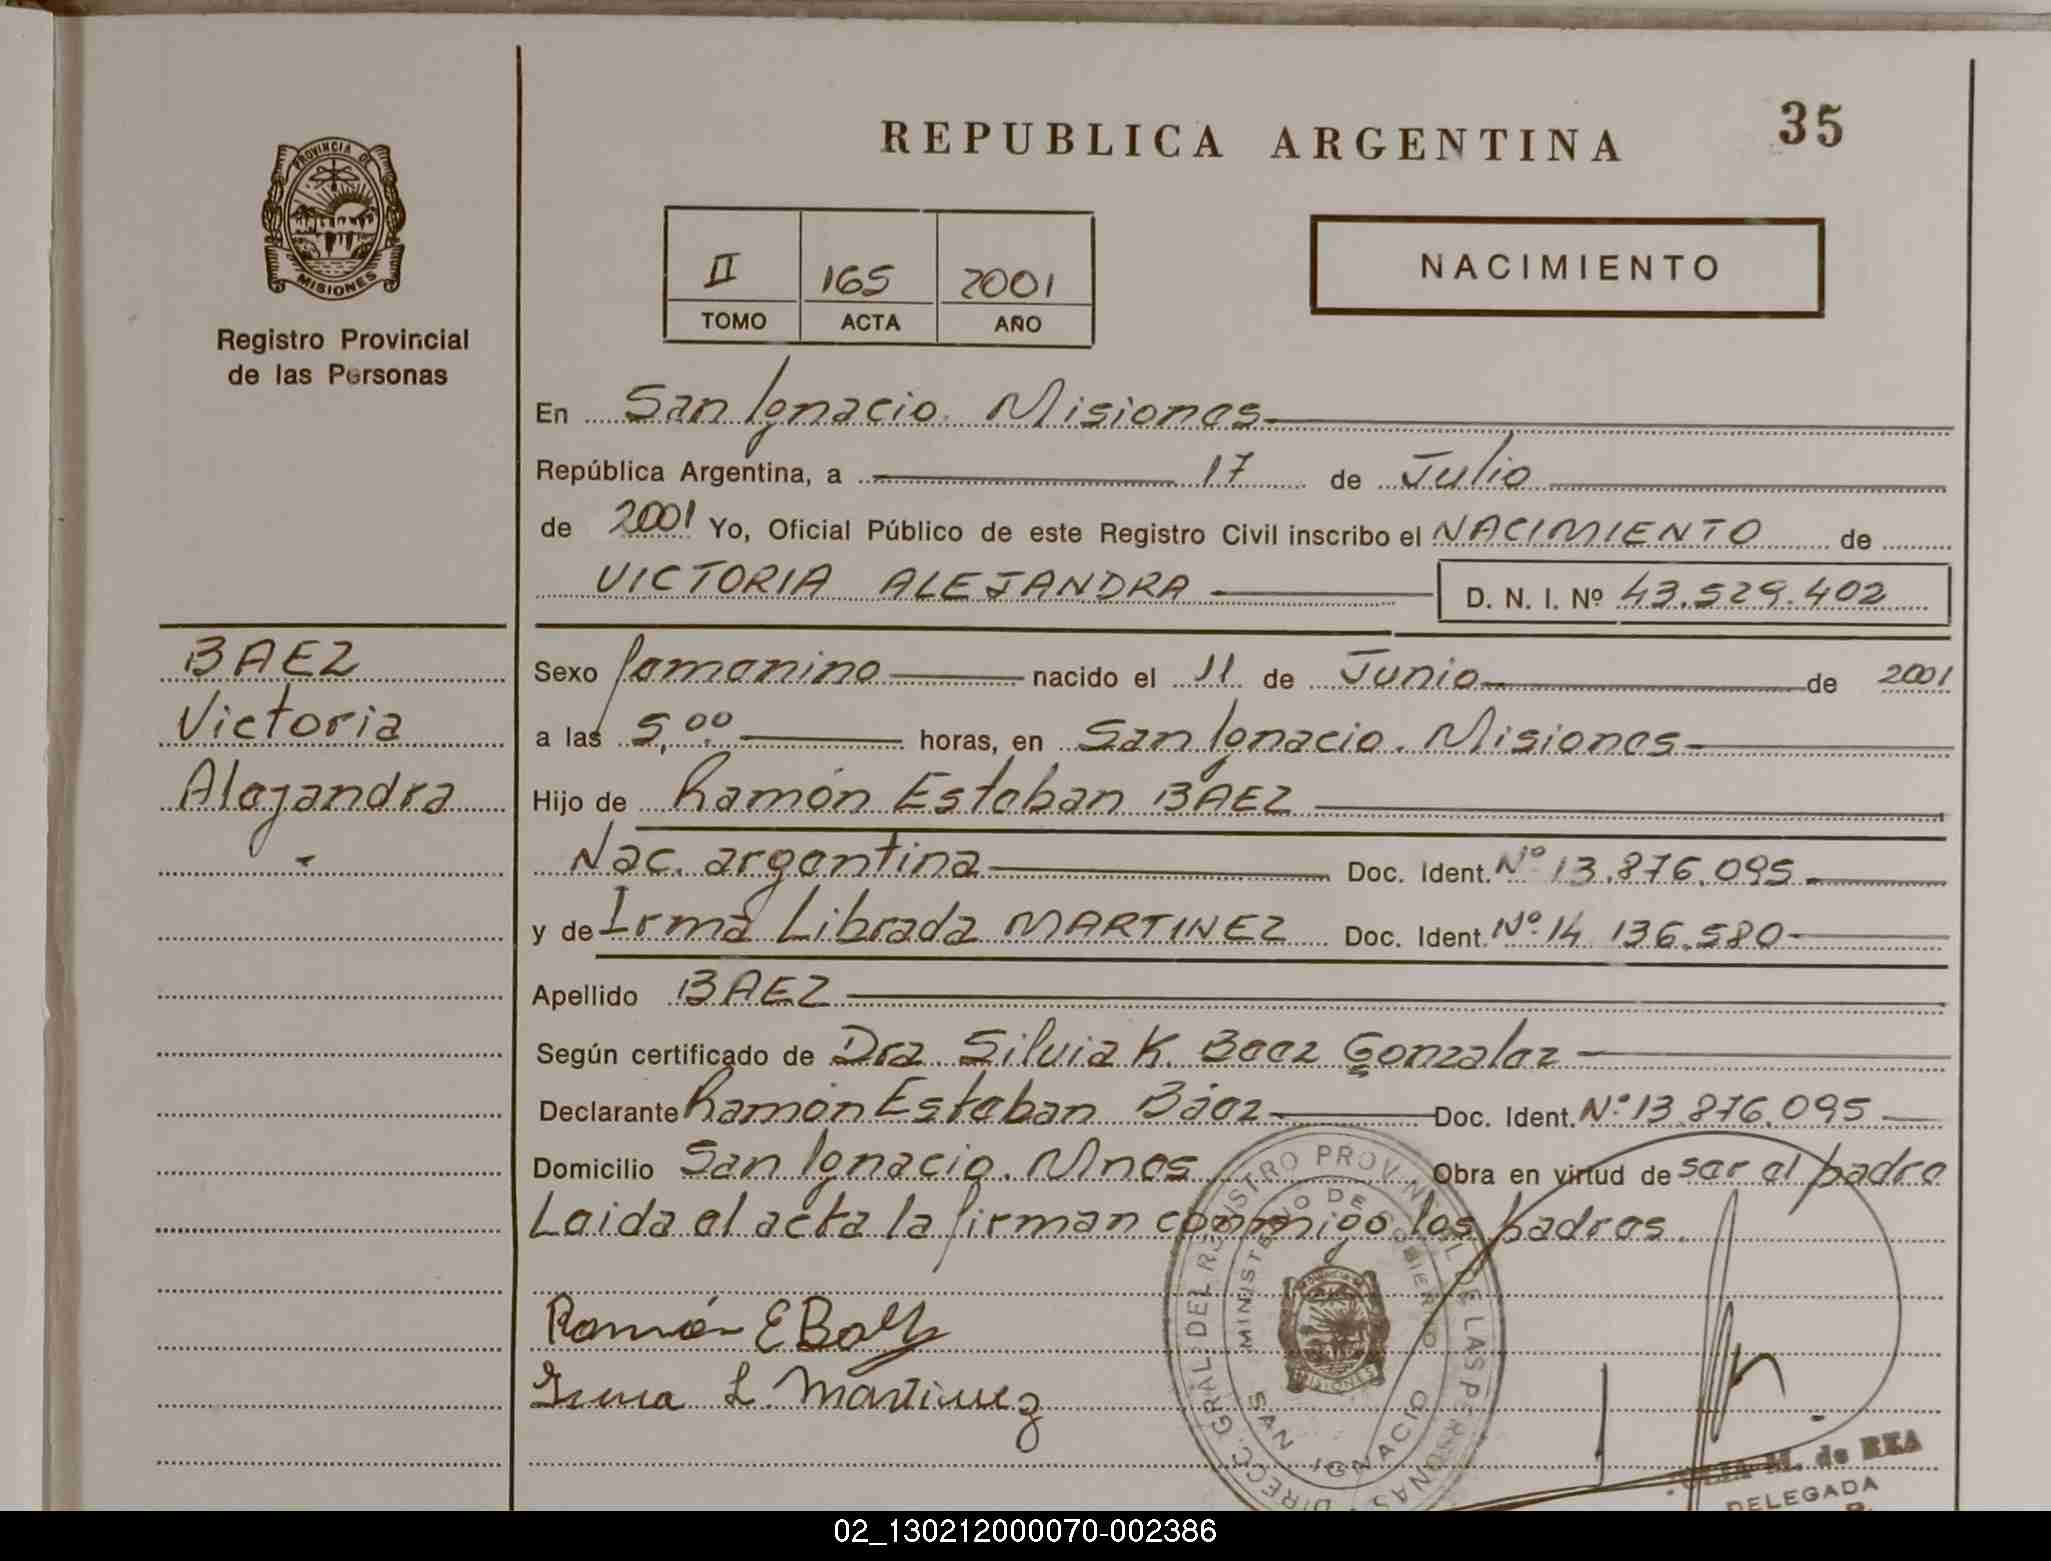 35
REPUBLICA ARGENTINA
PROVINCIA DE
MISIONES
Registro Provincial
de las Personas
NACIMIENTO
II 165 2001
TOMO ACTA AÑO
En San Ignacio. Misiones
República Argentina, a 17 de Julio
de 2001 Yo, Oficial Público de este Registro Civil inscribo el NACIMIENTO de
VICTORIA ALEJANDRA D. N. I. Nº 43.529.402
BAEZ
Victoria
Alejandra
Sexo femenino nacido el 11 de Junio de 2001
a las 5,00 horas, en San Ignacio. Misiones
Hijo de Ramón Esteban BAEZ
Nac. argentina Doc. Ident. Nº 13.876.095
y de Irma Librada MARTINEZ Doc. Ident. Nº 14 136.580
Apellido BAEZ
Según certificado de Dra Silvia K. Baez Gonzalez
Declarante Ramón Esteban Báez Doc. Ident. Nº 13.876.095
Domicilio San Ignacio. Mnes Obra en virtud de ser el padre
Leida el acta la firman conmigo los padres.
Ramón E Baez
Irma L. Martinez
DIRECC. GRAL. DEL REGISTRO PROVINCIAL DE LAS PERSONAS
MINISTERIO DE GOBIERNO
SAN IGNACIO
M. de REA
DELEGADA
02_130212000070-002386